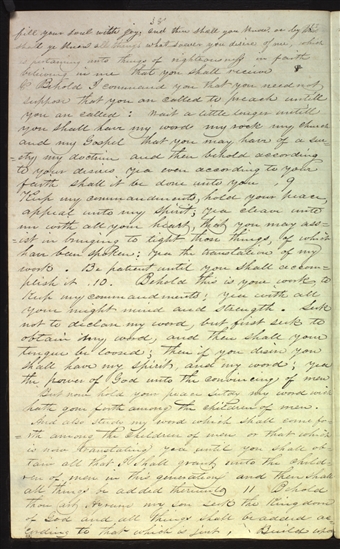 28
fill your soul with joy, and then shall you know or by this
shall ye know all things what soever you desire of me, which
is pertaining unto things of righteousness in faith
believing in me that you shall receive
Behold I command you that you need not
suppose that you are called to preach untill
you are called: wait a little longer untill
you shall have my word my rock my church
and my Gospel that you may have of a sure
ty my doctrine and then behold according
to your desires yea even according to your
faith shall it be done unto you . 9
Keep my commandments, hold your peace,
appeal unto my spirit; yea cleave unto
me with all your heart, that you may ass
ist in bringing to light those things, of which
has been spoken; yea the translation of my
work . Be patient untill you shall accom-
plish it . 10. Behold this is your work, to
keep my commandments; yea with all
your might mind and strength . Seek
not to declare my word, but first seek to
obtain my word, and then shall your
tongue be loosed; then if you desire you
shall have my spirit, and my word; yea
the power of God unto the convincing of men
But now hold your peace study my word which
hath gone forth among the children of men.
And also study my word which shall come for
th among the children of men or that which
is now translating yea until you shall ob-
tain all that I shall grant unto the child
ren of men in this generation and then shall
all things be added thereunto 11 Behold
thou art Hyrum my son seek the kingdom
of God and all things shall be added ac
cording to that which is just . Build upon